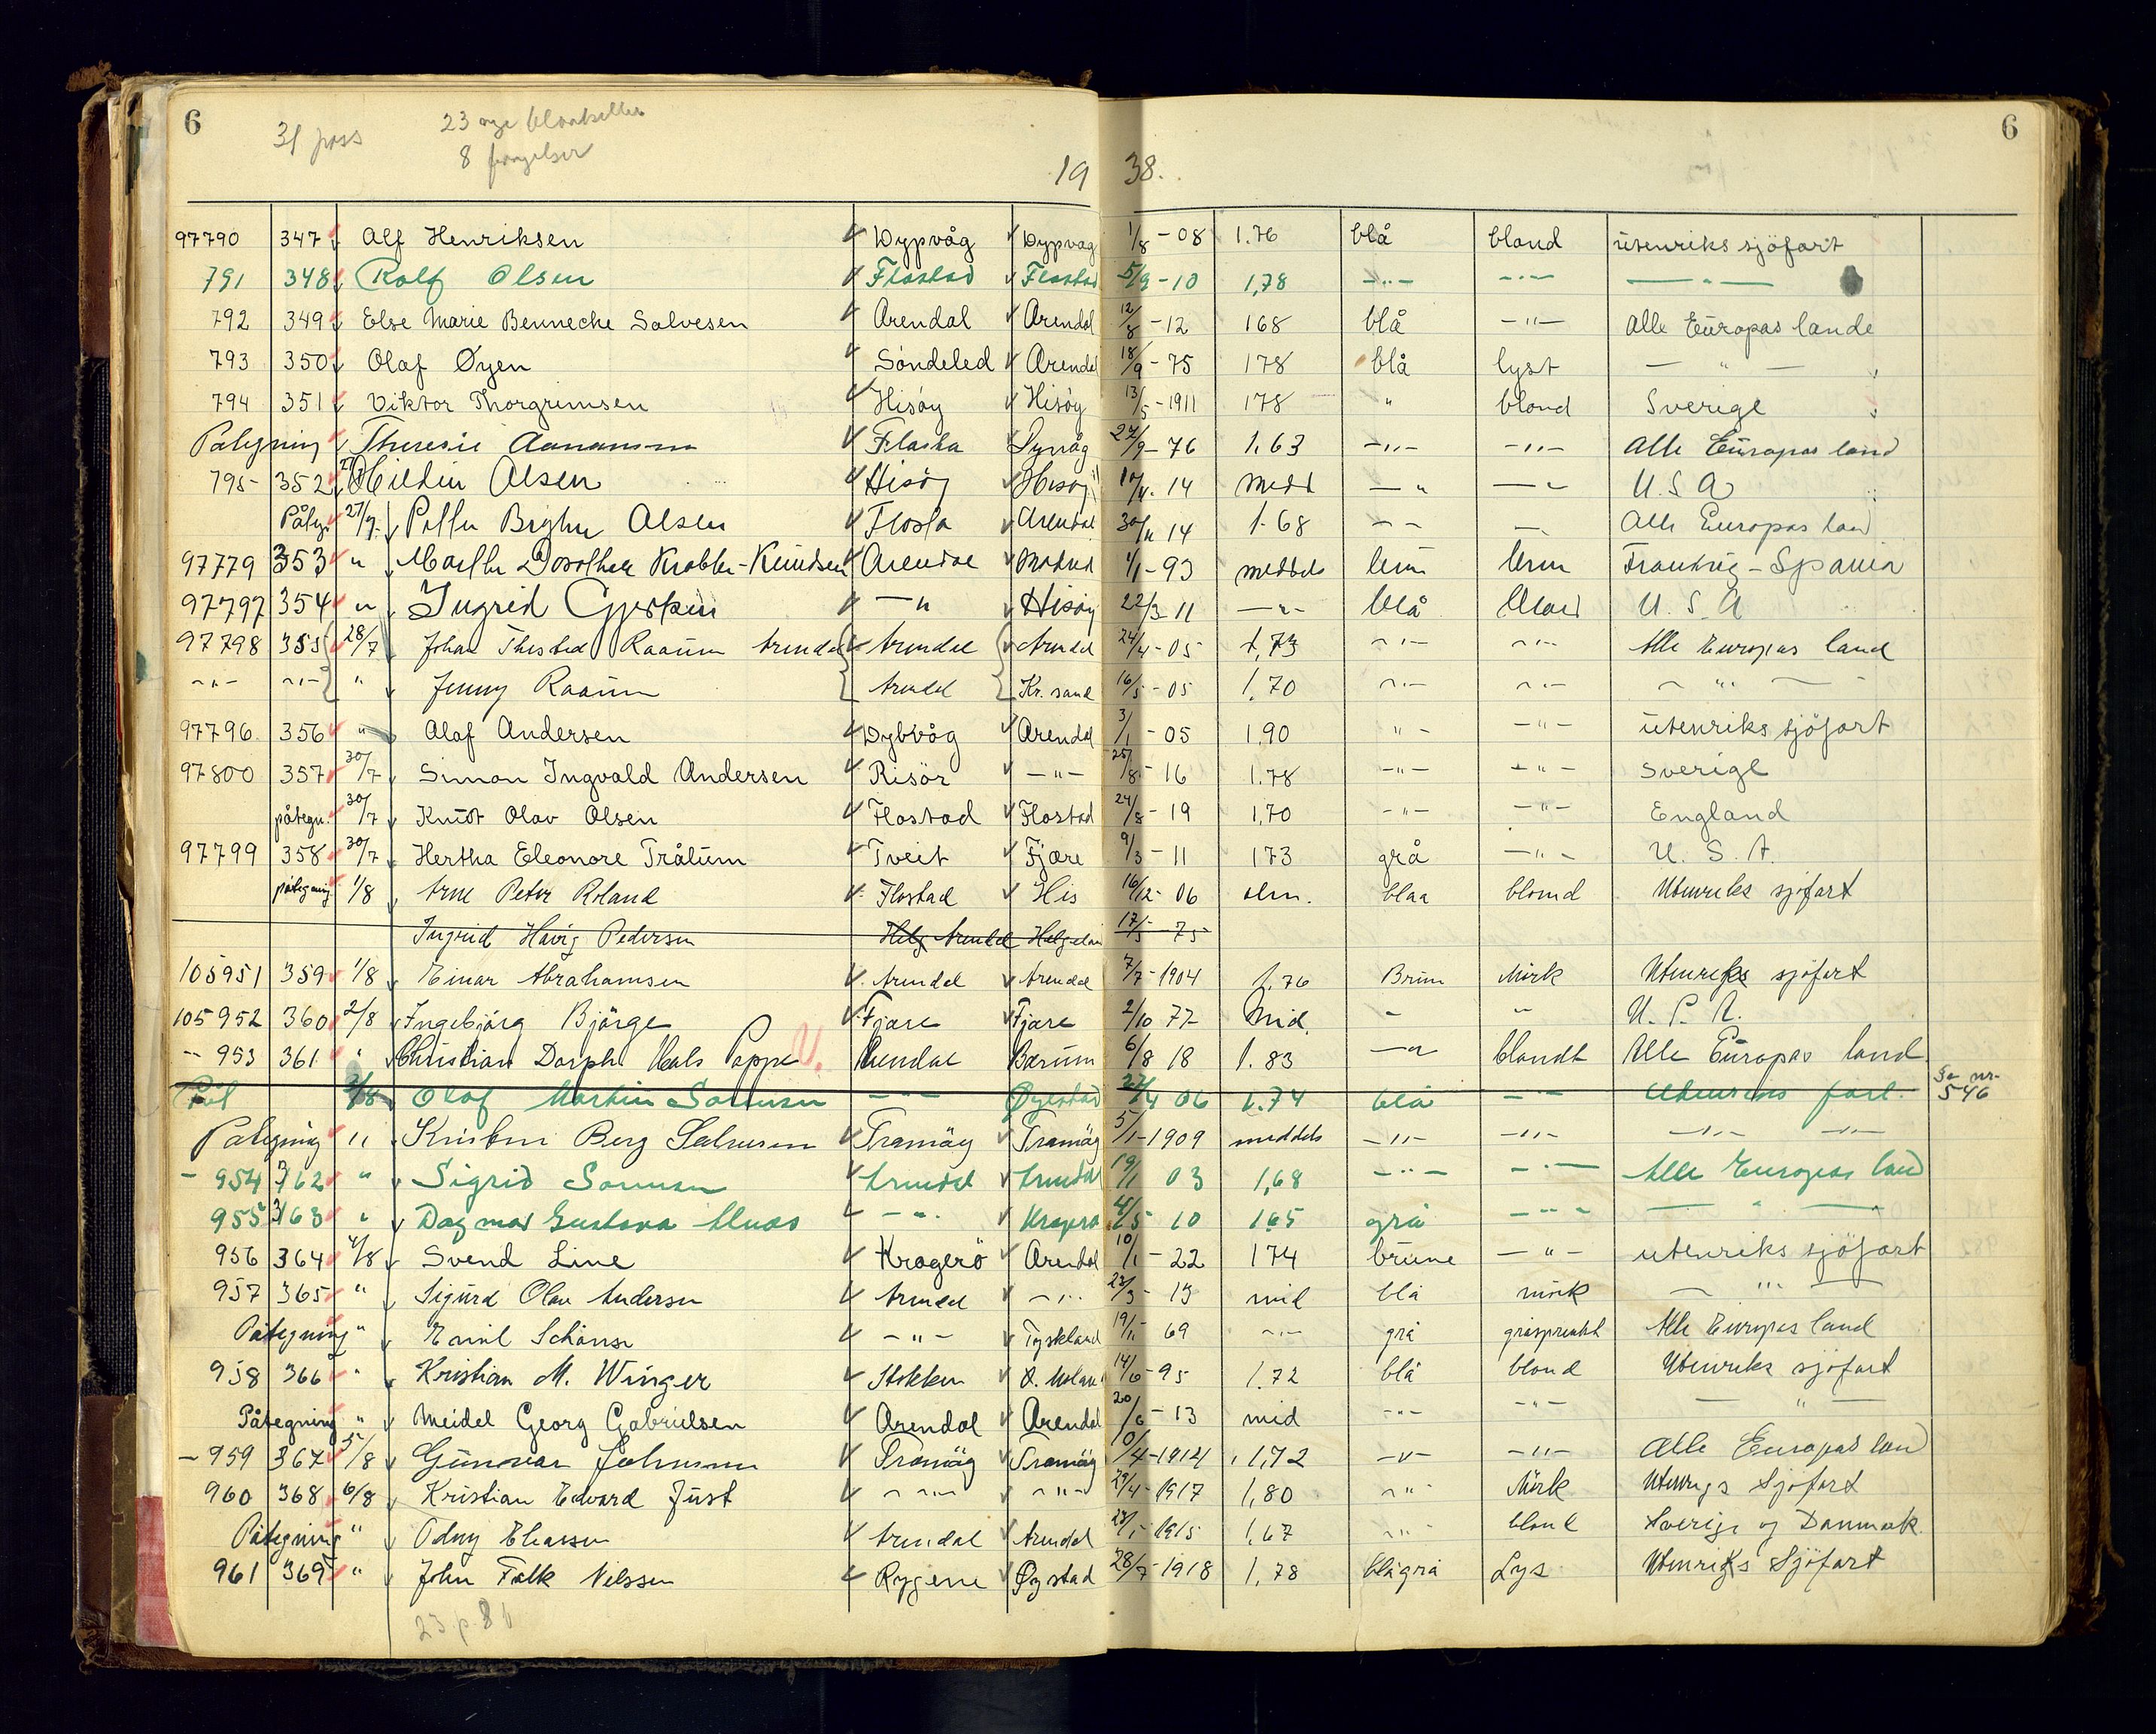 6 31 pass 23 nye blanketter 6
8
19 38.
97790 347 Alf Henriksen Dypvåg Dypvåg 1/8 - 08 1.76 blå blond utenriks sjöfart
791 348 Rolf Olsen Flostad Flostad 5/9 - 10 1,78 -"- -"- - " -
792 349 Else Marie Bennecke Salvesen Arendal Arendal 12/8 - 12 168 blå -"- Alle Europas lande
793 350 Olaf Øyen Söndeled Arendal 18/9 - 75 178 blå lyst - " -
794 351 Viktor Thorgrimsen Hisöy Hisöy 13/5 - 1911 178 " blond Sverige
Påtegning Theresie Flosta Dyvåg 27/9 - 76 1.63 -"- -"- Alle Europas land
795 352 Olsen Hisöy Hisöy 14 medd - " - " U.S.A
Påtegn 27/7 Olsen Flosta Arendal 30/11 14 1.68 - - - Alle Europas land
97779 353 " Marthe Dorothea Krabbe-Knudsen Arendal 1/1 - 93 middels brun brun Frankrig - Spania
97797 354 " Ingrid - " Hisöy 22/3 11 - " - blå blond U.S.A
97798 355 28/7 Johan Thisted Raaum Arendal Arendal Arendal 24/4 - 05 1,73 -"- -"- Alle Europas land
-"- -"- " Jenny Raaum Arendal Kr. sand 16/5 - 05 1.70 -"- -"- - " -
97796 356 " Olaf Andersen Dybvåg Arendal 3/1 - 05 1.90 " - -"- utenriks sjöfart
97800 357 30/7 Simon Ingvald Andersen Risör -"- 25/8 - 16 1.78 -"- -"- Sverige
påtegn. 30/7 Knut Olav Olsen Flostad Flostad 24/8 - 19 1,70 -"- -"- England
97799 358 30/7 Hertha Eleonore Trålum Tveit Fjære 9/3 - 11 173 grå -"- U.S.A.
påtegning 1/8 Arne Peter Roland Flostad His 16/12 - 06 alm. blaa blond Utenriks sjöfart
Ingrid Havig Pedersen Helg Arendal 17/5 75
105951 359 1/8 Einar Abrahamsen Arendal Arendal 7/7 - 1904 1.76 Brun Mörk Utenriks sjöfart
105952 360 2/8 Ingebjörg Björge Fjære Fjære 2/10 77 Mid. - " U.S.A.
" 953 361 " Christian Dorph Poppe Arendal Bærum 6/8 18 1.83 - " blondt Alle Europas land
Påt /8 Olaf Martin - " - Øyestad 27/4 06 1.74 blå - " - Utenriks fart. Se nr. 546
Påtegning " Kristen Berg Salvesen Tromöy Tromöy 5/1 - 1909 middels -"- -"- -"- -"-
- 954 362 " Sigrid Arendal Arendal 19/1 03 1,68 -"- -"- Alle Europas land
955 363 " Dagmar Gustava - " - 10 1.65 grå -"- - " -
956 364 4/8 Svend Line Kragerö Arendal 10/1 - 22 174 brune -"- utenriks sjöfart
957 365 " Sigurd Olav Andersen Arendal -"- 23/3 - 13 mid blå mörk - " -
Påtegning " Emil -"- Tyskland 19/11 69 -"- grå gråsprengt Alle Europas land
958 366 " Kristian M. Winger Stokken 14/6 - 95 1.72 blå blond Utenriks sjöfart
Påtegning " Meidel Georg Gabrielsen Arendal Arendal 20/6 - 13 mid -"- -"- - " -
- 959 367 5/8 Gunvor Tromöy Tromöy 10/4 - 1914 1,72 -"- -"- Alle Europas land
960 368 6/8 Kristian Edvard Just -"- -"- 29/4 - 1917 1,80 -"- Mörk Utenrigs Sjöfart
Påtegning " Odny Eliassen Arendal Arendal 1915 1,67 -"- blond Sverige og Danmark
961 369 " John Falk Nilssen Rygene Øystad 28/7 - 1918 1,78 blågrå Lys Utenriks Sjöfart
23 p. 8